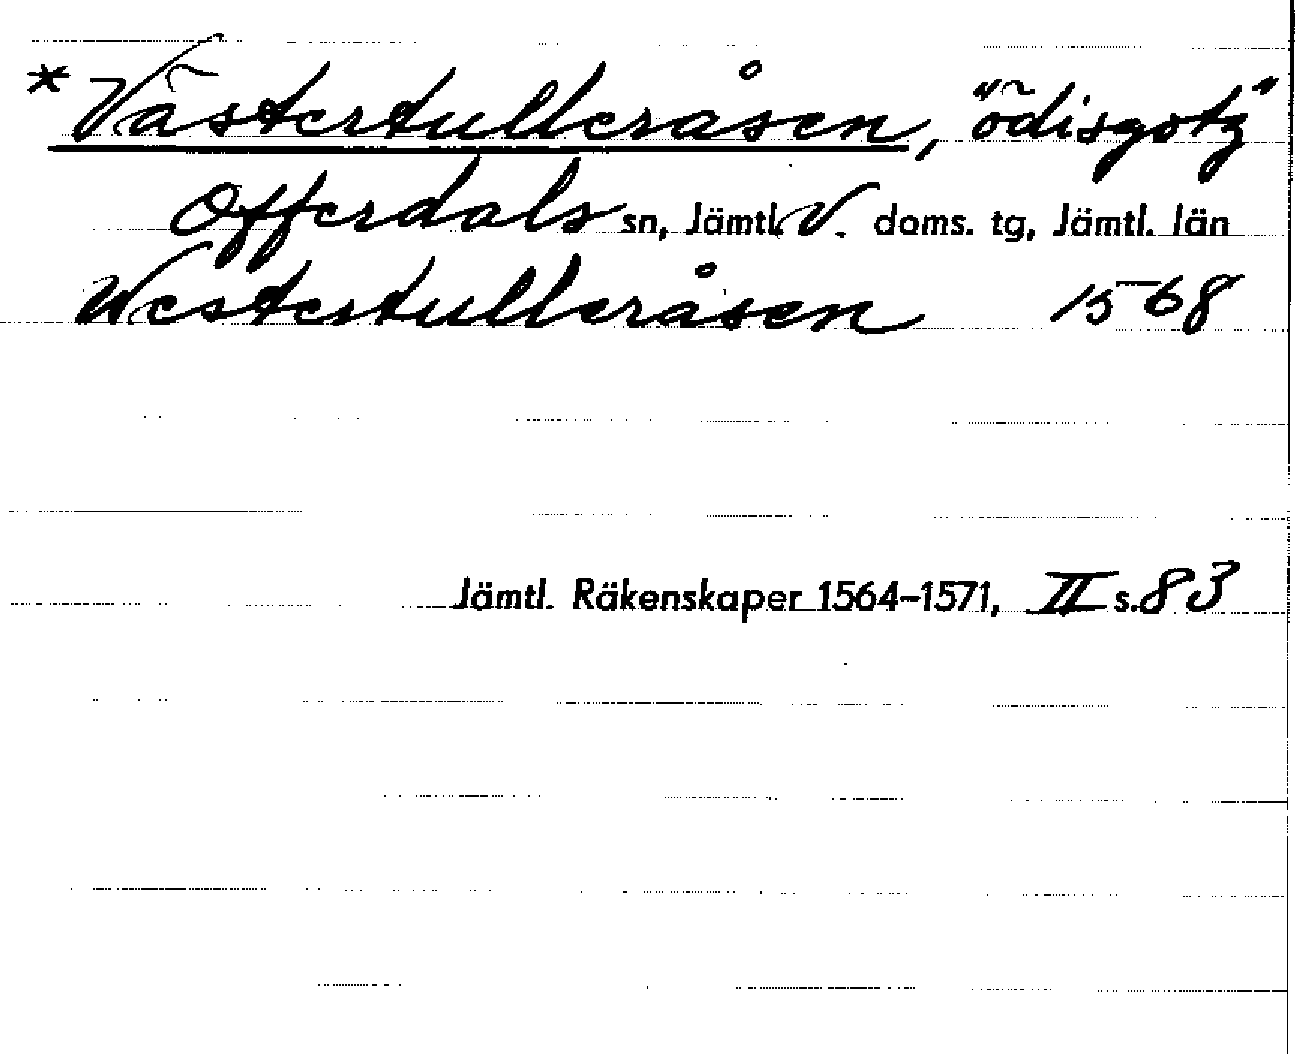 * Västertulleråsen, "ödisgotz"
Offerdals sn, Jämtl. V. doms. tg, Jämtl. län
Westertulleråsen 1568
Jämtl. Räkenskaper 1564–1571, II s. 83